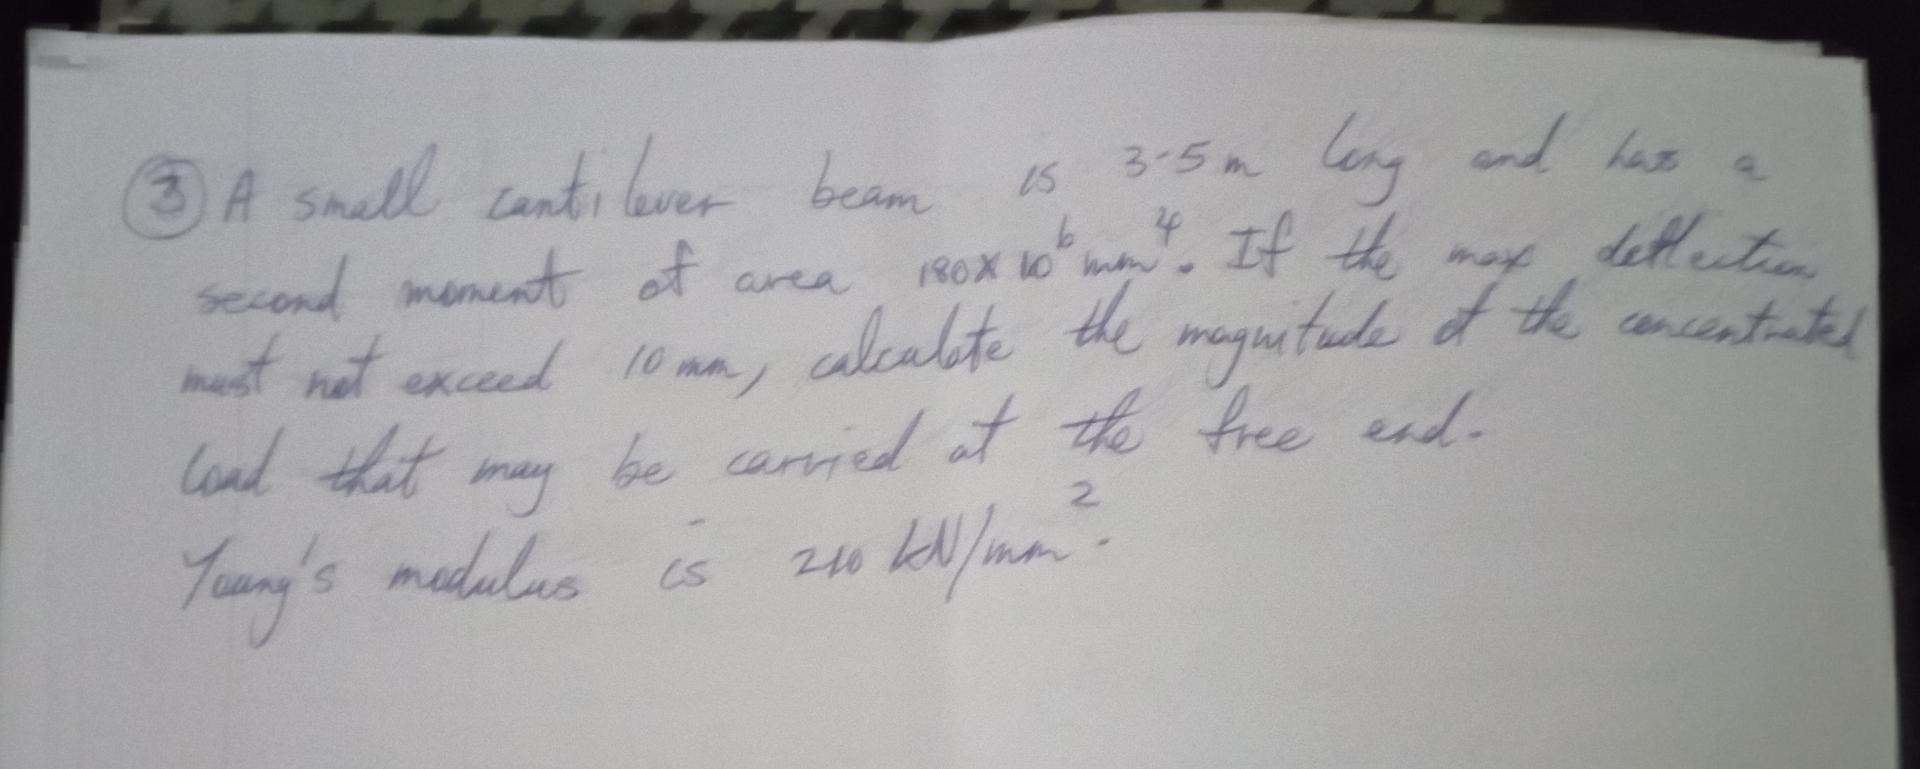 ③ A small cantilever beam is 3.5m long and has a
second moment of area 180x10⁶ mm⁴. If the max deflection
must not exceed 10mm, calculate the magnitude of the concentrated
load that may be carried at the free end.
Young's modulus is 210 kN/mm².